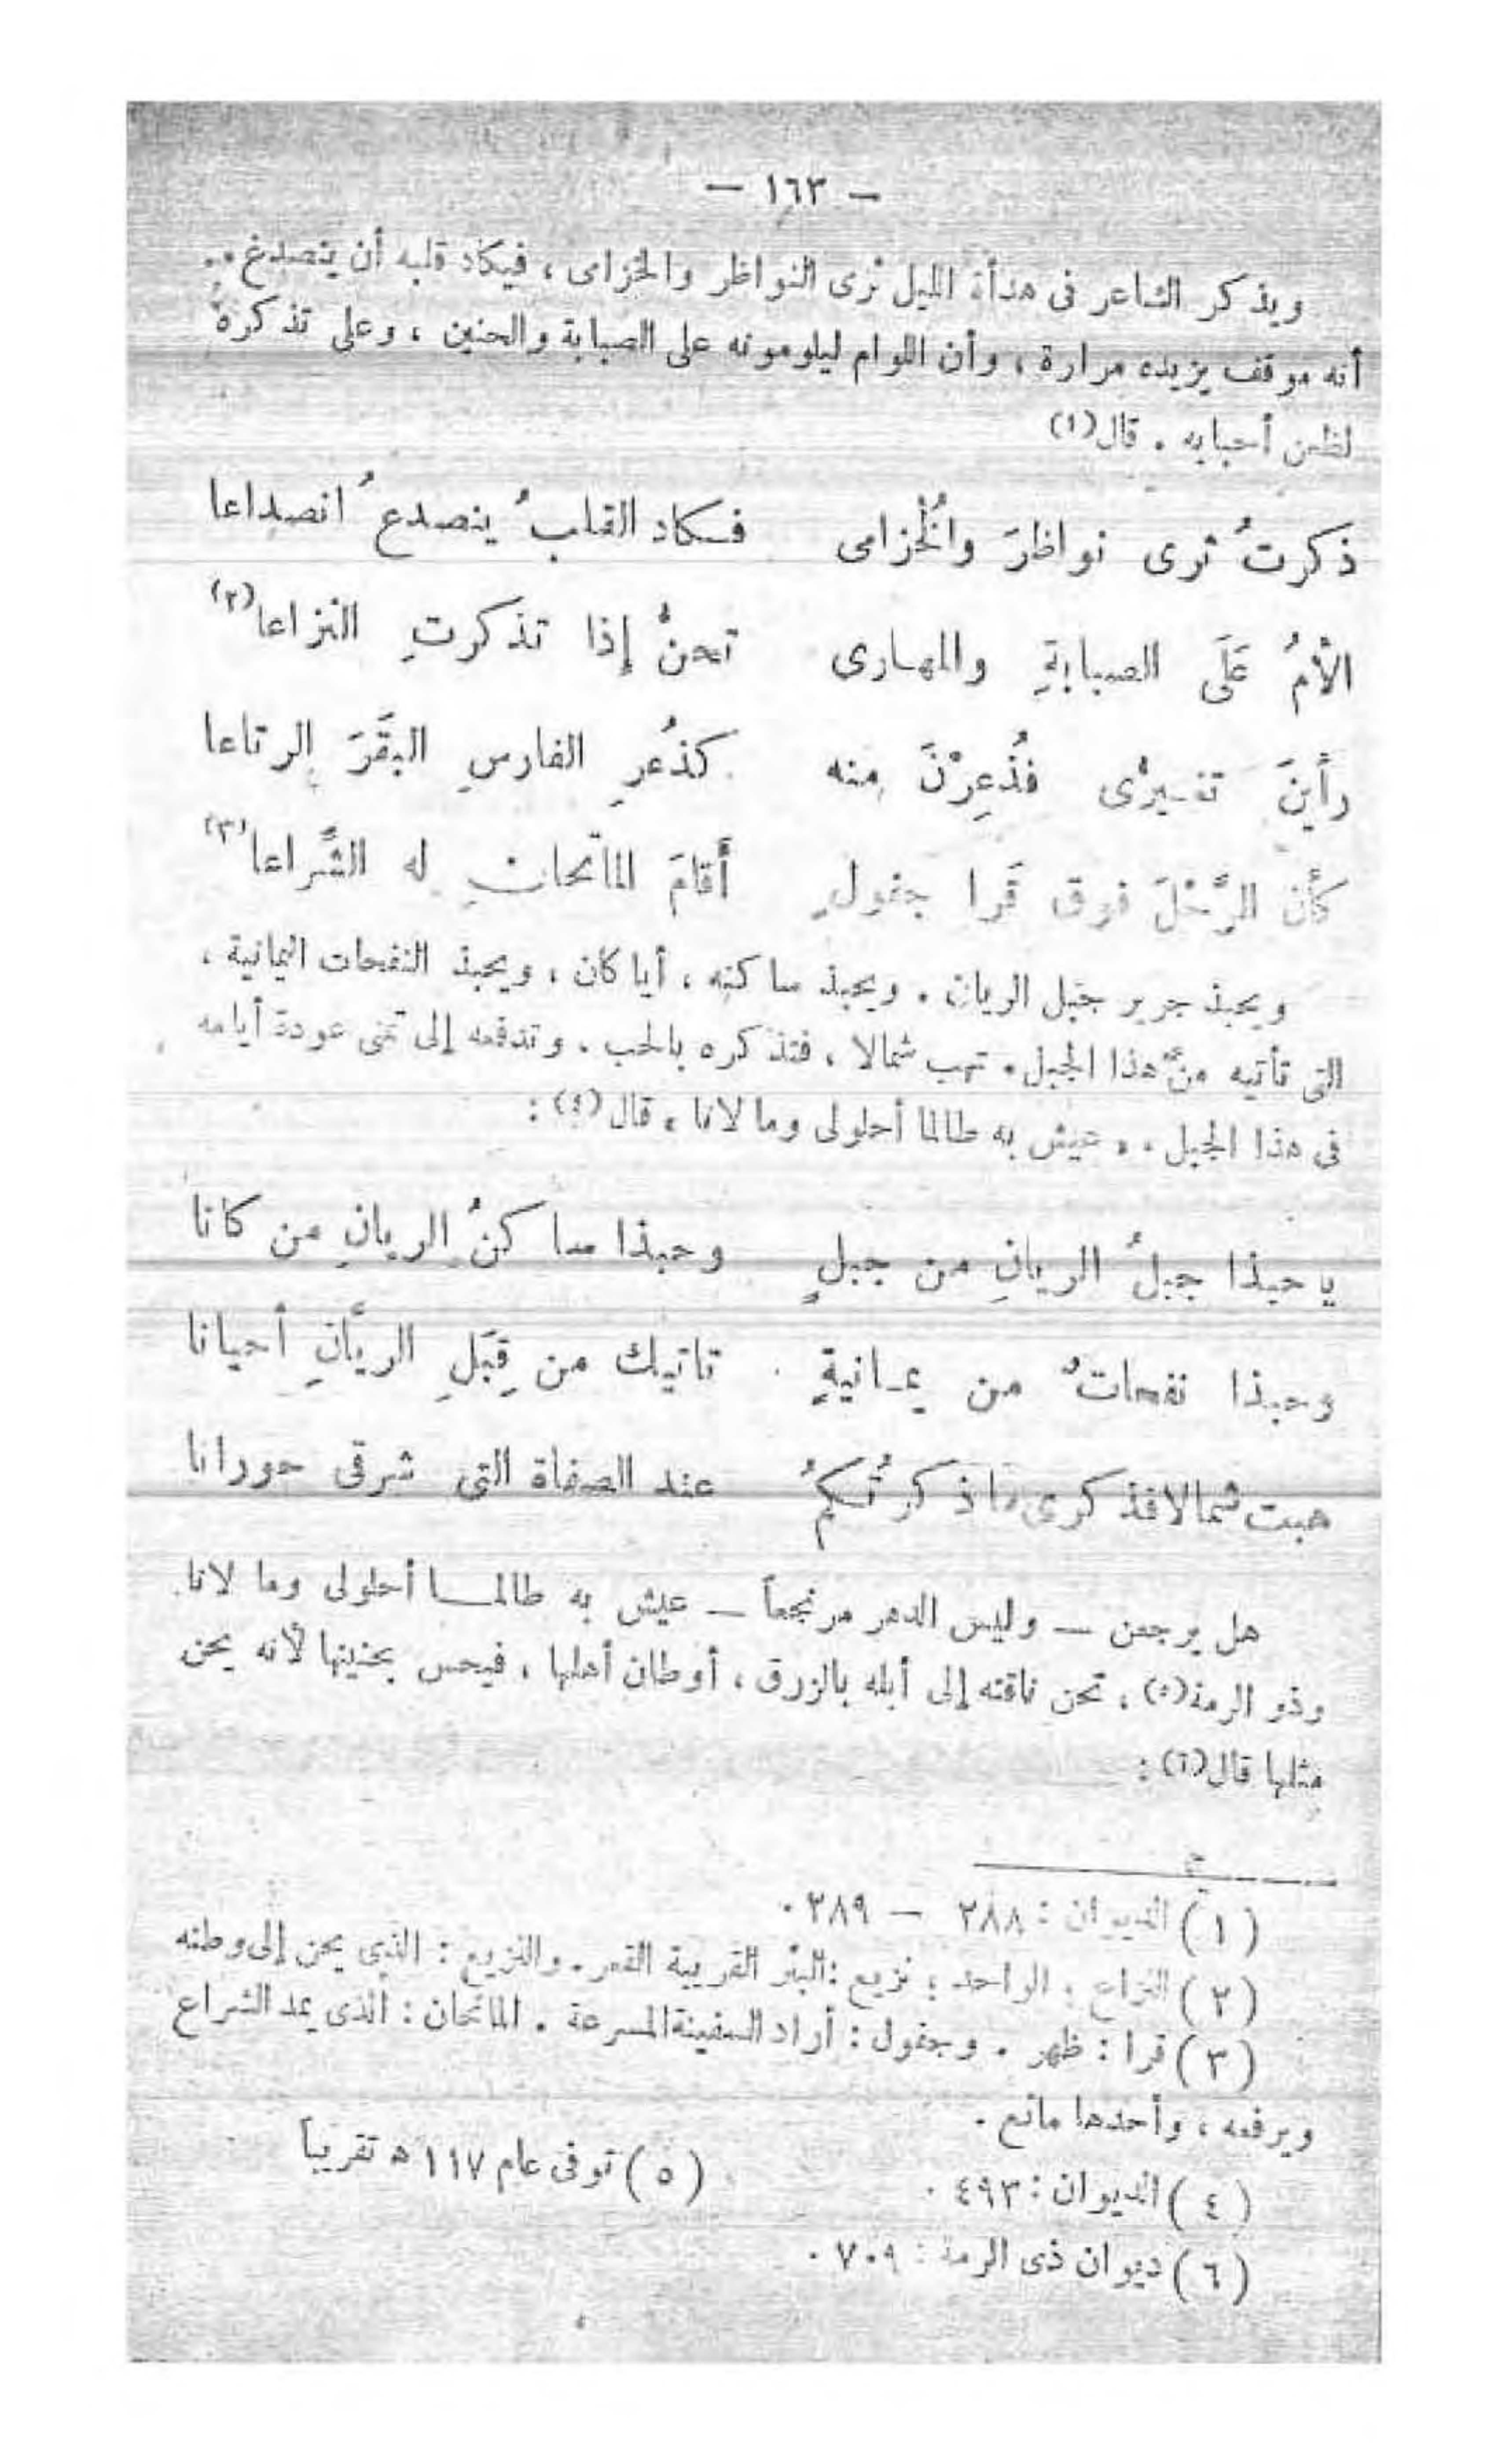 — ١٦٣ —
ويذكر الشاعر فى هدأة الليل ثرى النواظر والخزامى ، فيكاد قلبه أن يتصدع ..
أنه موقف يزيده مرارة ، وأن اللوام ليلومونه على الصبابة والحنين ، وعلى تذكره
لظعن أحبابه . قال(١)
ذكرتُ ثرى نواظرَ والخُزامى فكاد القلبُ ينصدعُ انصداعا
الْأمُ عَلَى الصبابةِ والمهارى تحنُّ إذا تذكرتِ النزاعا(٢)
رأينَ تغيرى فذُعِرْنَ منه كذُعرِ الفارسِ البقَرَ الرتاعا
كأن الرَّحْلَ فوق قَرا جفولٍ أقامَ الماتحانِ له الشِّراعا(٣)
ويحبذ جرير جبل الريان . ويحبذ ساكنه ، أيا كان ، ويحبذ النفحات اليمانية ،
التى تأتيه من هذا الجبل . تهب شمالا ، فتذكره بالحب . وتدفعه إلى تمنى عودة أيامه
فى هذا الجبل ، . عيش به طالما أحلولى وما لانا ، قال(٤) :
يا حبذا جبلُ الريانِ من جبلٍ وحبذا ساكنُ الريانِ من كانا
وحبذا نفحاتٌ من يمانيةٍ تاتيك من قِبَلِ الريَّانِ أحيانا
هبت شمالا فذكرى ما ذكرتُكمُ عند الصفاة التى شرقى حورانا
هل يرجعن — وليس الدهر مرتجعاً — عيش به طالما أحلولى وما لانا
وذو الرمة(٥) ، تحن ناقته إلى أبله بالزرق ، أوطان أهلها ، فيحس بحنينها لأنه يحن
مثلها قال(٦) :
(١) الديوان : ٢٨٨ — ٢٨٩ .
(٢) النزاع : الواحد : نزيع : البئر القريبة القعر . والنزيع : الذى يحن إلى وطنه
(٣) قرا : ظهر . وجفول : أراد السفينة المسرعة . الماتحان : الذى يمد الشراع
ويرفعه ، وأحدها ماتح .
(٤) الديوان : ٤٩٣ . (٥) توفى عام ١١٧ ه تقريباً
(٦) ديوان ذى الرمة : ٧٠٩ .